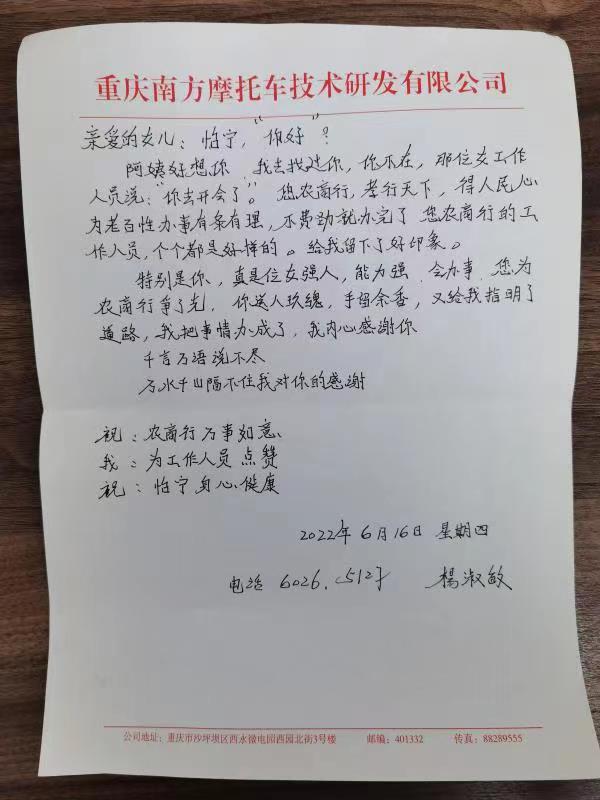 重庆南方摩托车技术研发有限公司
亲爱的女儿：怡宁，“你好”？
阿姨好想你，我去找过你，你不在，那位女工作
人员说：“你去开会了”。您农商行，孝行天下，得人民心
为老百性办事有条有理，不费劲就办完了 您农商行的工
作人员，个个都是好样的。给我留下了好印象。
特别是你，真是位女强人，能力强，会办事，您为
农商行争了光，你送人玫瑰，手留余香，又给我指明了
道路，我把事情办成了，我内心感谢你
千言万语说不尽
万水千山隔不住我对你的感谢
祝：农商行万事如意
我：为工作人员点赞
祝：怡宁身心健康
2022年6月16日 星期四
电话 6026 楊淑敏
公司地址：重庆市沙坪坝区西永微电园西园北街3号楼 邮编：401332 传真：88289555